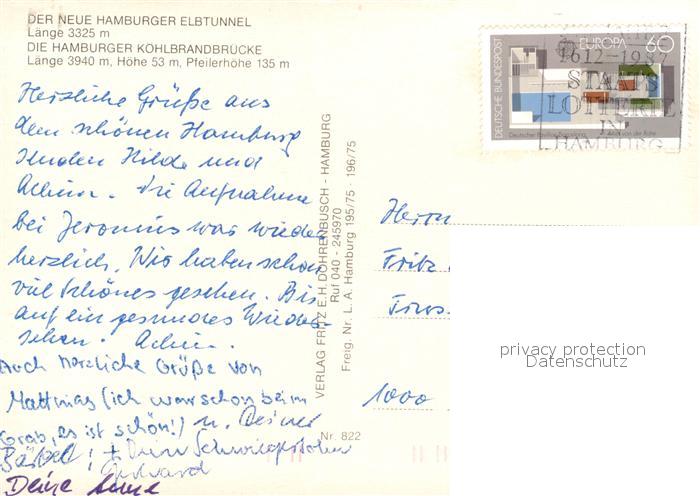 DER NEUE HAMBURGER ELBTUNNEL
Länge 3325 m
DIE HAMBURGER KÖHLBRANDBRÜCKE
Länge 3940 m, Höhe 53 m, Pfeilerhöhe 135 m
Herzliche Grüße aus
dem schönen Hamburg
senden Hilde und
Achim. Die Aufnahme
bei Jeromins war wieder
herzlich. Wir haben schon
viel Schönes gesehen. Bis
auf ein gesundes Wieder-
sehen. Achim.
Auch herzliche Grüße von
Matthias (ich war schon beim
Grab, es ist schön!) u. Deiner
Bärbel! + Dein Schwiegersohn
Gerhard
Deine
VERLAG FRITZ E.H. DÖHRENBUSCH - HAMBURG
Ruf 040 - 245970
Freig. Nr. L. A. Hamburg 195/75 · 196/75
Nr. 822
DEUTSCHE BUNDESPOST
EUROPA 60
Deutscher Pavillon Barcelona Mies van der Rohe
1612-1987
STAATS
LOTTERIE
IN
HAMBURG
Herrn
Fritz
1000
privacy protection
Datenschutz